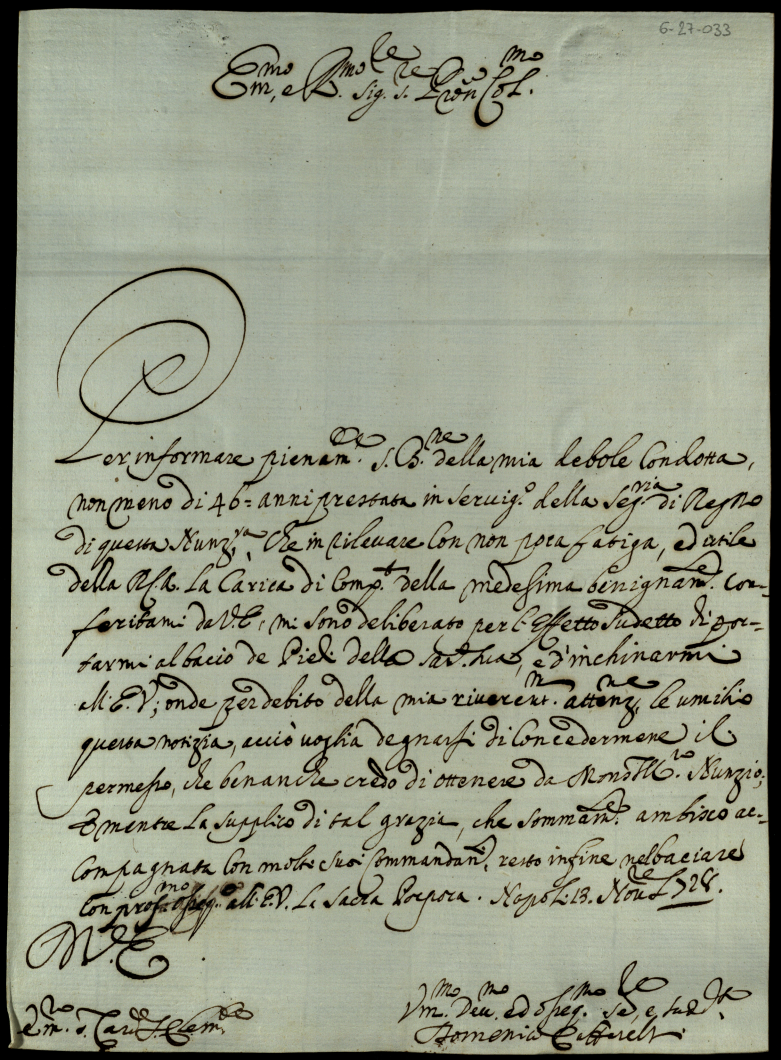 6-27-033
Em.mo, e R.mo Sig.re S.re P[ad]ron Col.mo
Per informare pienam.te S. B.ne della mia debole Condotta,
non meno di 46= anni prestata in servig.o della Seg.ria di Regno
di questa Nunz.ra, che in rilevare con non poca fatiga, ed utile
della R.C.A. la Carica di Comp.t della medesima benignam.te con-
feritami da V.E., mi sono deliberato per l'effetto sudetto di por-
tarmi al bacio de Piedi della San.tà sua, e d'inchinarmi
all'E.V; onde per debito della mia riverent.ma attenz.ne, le umilio
questa notizia, acciò voglia degnarsi di Concedermene il
permesso, che benanche credo di ottenere da Mons. Ill.ro Nunzio;
E mentre la supplico di tal grazia, che sommam.te ambisco ac-
compagnata con molti suoi Commandam.ti, resto infine nel baciare
con prof.mo osseq.o all'E.V. la Sacra Porpora. Napoli 13. Nov.re 1728.
D. V. E.
Em.ro S. Card. S. Clem.te
Um.mo Dev.mo ed osseq.mo Se.re
Domenico Caffarelli